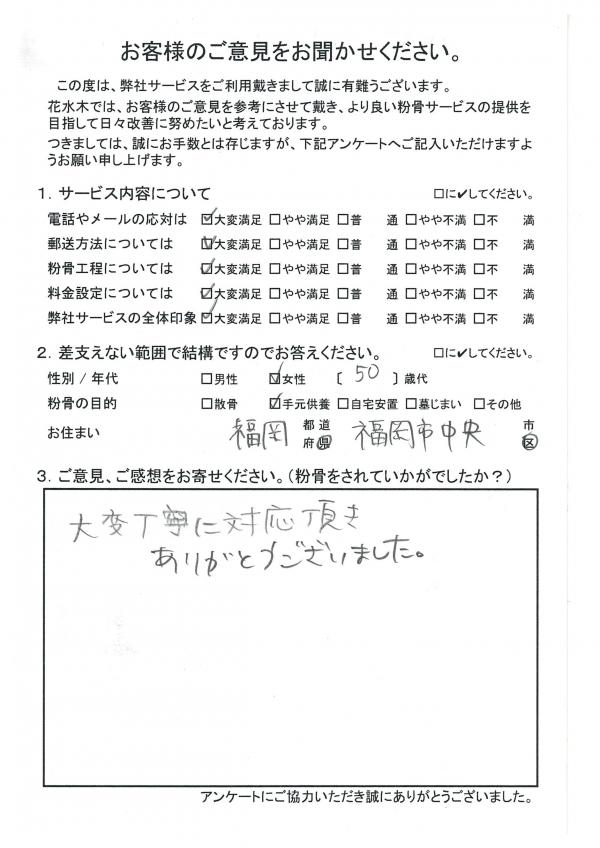 お客様のご意見をお聞かせください。
この度は、弊社サービスをご利用戴きまして誠に有難うございます。
花水木では、お客様のご意見を参考にさせて戴き、より良い粉骨サービスの提供を
目指して日々改善に努めたいと考えております。
つきましては、誠にお手数とは存じますが、下記アンケートへご記入いただけますよ
うお願い申し上げます。
1．サービス内容について　□に✔してください。
電話やメールの応対は ☑大変満足 □やや満足 □普　通 □やや不満 □不　満
郵送方法については ☑大変満足 □やや満足 □普　通 □やや不満 □不　満
粉骨工程については ☑大変満足 □やや満足 □普　通 □やや不満 □不　満
料金設定については ☑大変満足 □やや満足 □普　通 □やや不満 □不　満
弊社サービスの全体印象 ☑大変満足 □やや満足 □普　通 □やや不満 □不　満
2．差支えない範囲で結構ですのでお答えください。　□に✔してください。
性別 / 年代 □男性 ☑女性 〔 50 〕歳代
粉骨の目的 □散骨 ☑手元供養 □自宅安置 □墓じまい □その他
お住まい 福岡 都道府県 福岡市中央 市区
3．ご意見、ご感想をお寄せください。（粉骨をされていかがでしたか？）
大変丁寧に対応頂き
ありがとうございました。
アンケートにご協力いただき誠にありがとうございました。